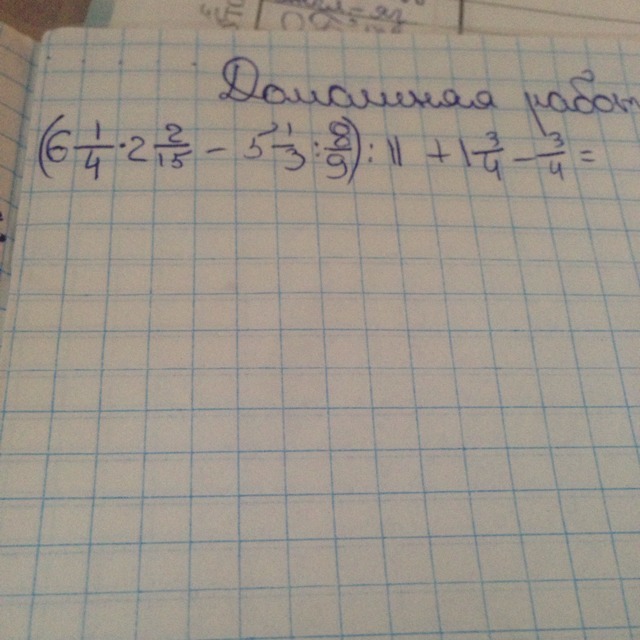 Домашная работ
(6 1/4 · 2 2/15 − 5 1/3 : 8/9) : 11 + 1 3/4 − 3/4 =